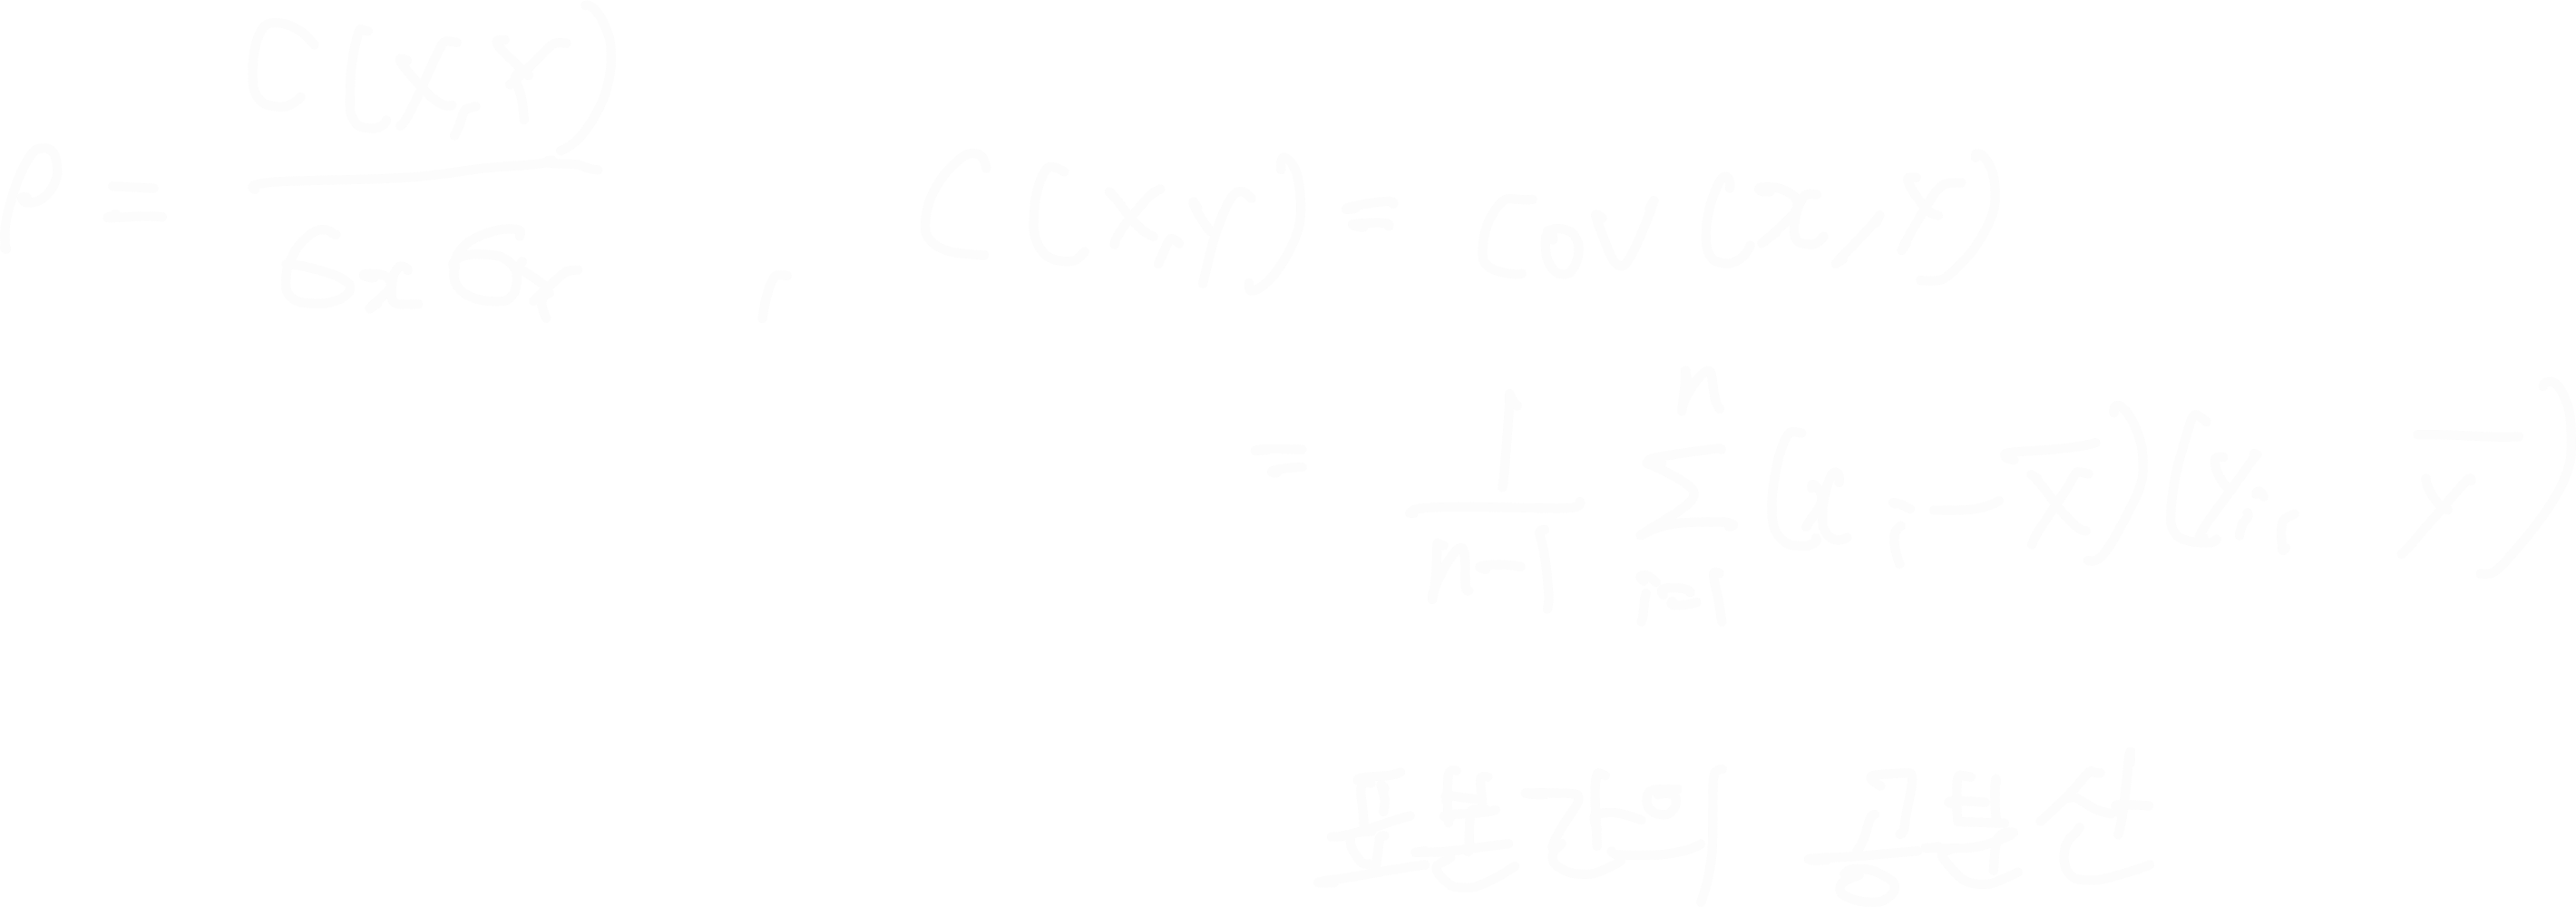 ρ = C(X,Y) / σx σY , C(X,Y) = Cov(x,Y)
= 1/(n-1) Σ i=1 n (xi - x̄)(yi, ȳ)
표본간의 공분산